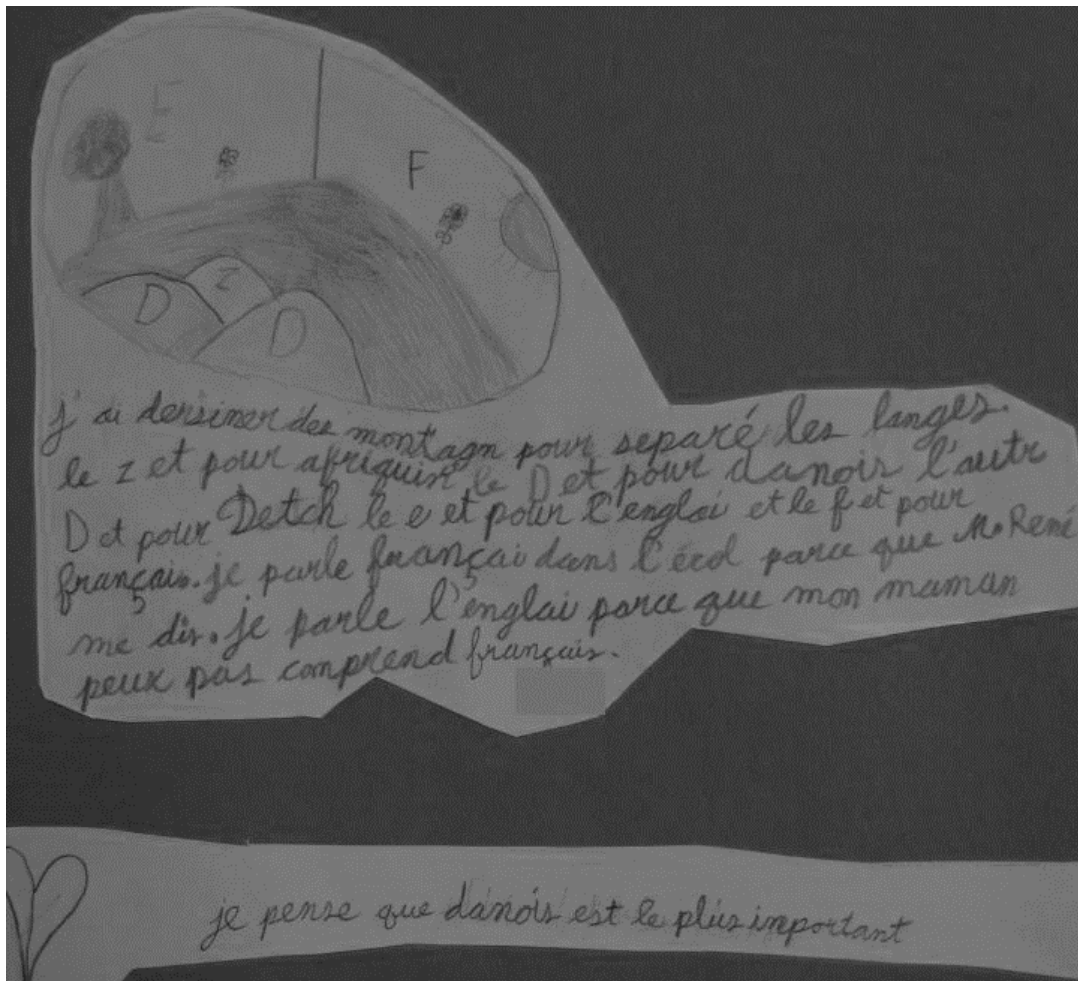 E
F
D
Z
D
j'ai dersiner des montagn pour separé les langes.
le z et pour afriquin le D et pour danois l'autr
D et pour Detch le e et pour l'englai et le f et pour
français. je parle françai dans l'écol parce que M. René
me dis. je parle l'englai parce que mon maman
peux pas comprend français.
je pense que danois est le plus important